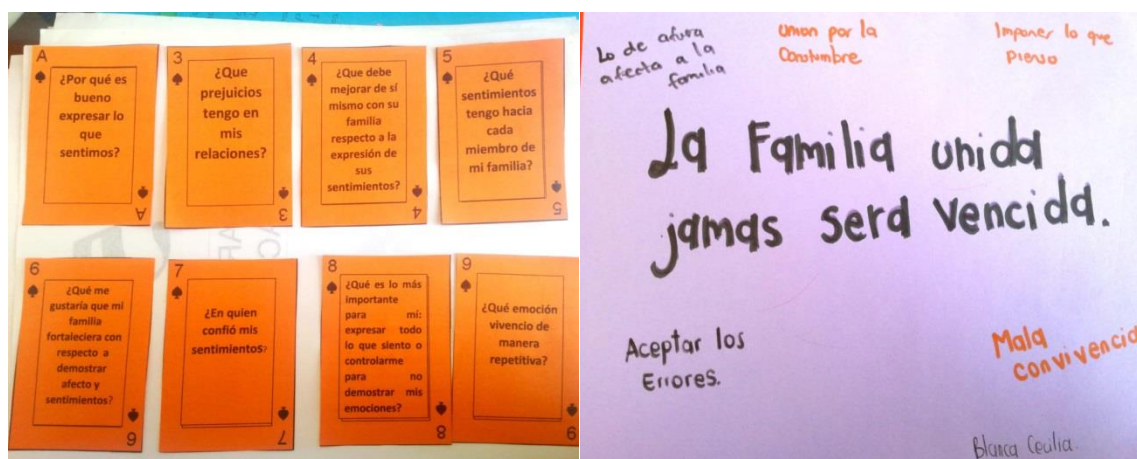 A
¿Por qué es
bueno
expresar lo
que
sentimos?
A
3
¿Que
prejuicios
tengo en
mis
relaciones?
3
4
¿Que debe
mejorar de sí
mismo con su
familia
respecto a la
expresión de
sus
sentimientos?
4
5
¿Qué
sentimientos
tengo hacia
cada
miembro de
mi familia?
5
6
¿Qué me
gustaría que mi
familia
fortaleciera con
respecto a
demostrar
afecto y
sentimientos?
6
7
¿En quien
confió mis
sentimientos?
7
8
¿Qué es lo más
importante
para mí:
expresar todo
lo que siento o
controlarme
para no
demostrar mis
emociones?
8
9
¿Qué emoción
vivencio de
manera
repetitiva?
9
Lo de afuera
afecta a la
familia
Union por la
Constumbre
Imponer lo que
Pienso
La Familia unida
jamas sera vencida.
Aceptar los
Errores.
Mala
convivencia
Blanca Cecilia.